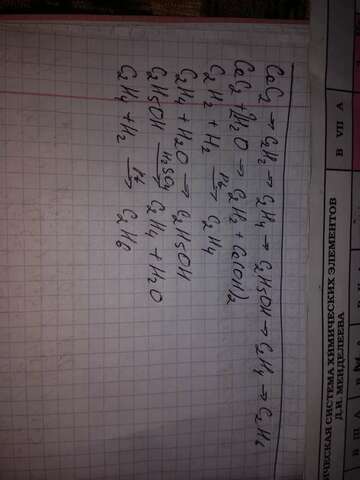 CaC2 → C2H2 → C2H4 → C2H5OH → C2H4 → C2H6
CaC2 + 2H2O → C2H2 + Ca(OH)2
C2H2 + H2 → C2H4
C2H4 + H2O → C2H5OH
C2H5OH H2SO4 → C2H4 + H2O
C2H4 + H2 Pt → C2H6
ИЧЕСКАЯ СИСТЕМА ХИМИЧЕСКИХ ЭЛЕМЕНТОВ
Д.И. МЕНДЕЛЕЕВА
В VII А